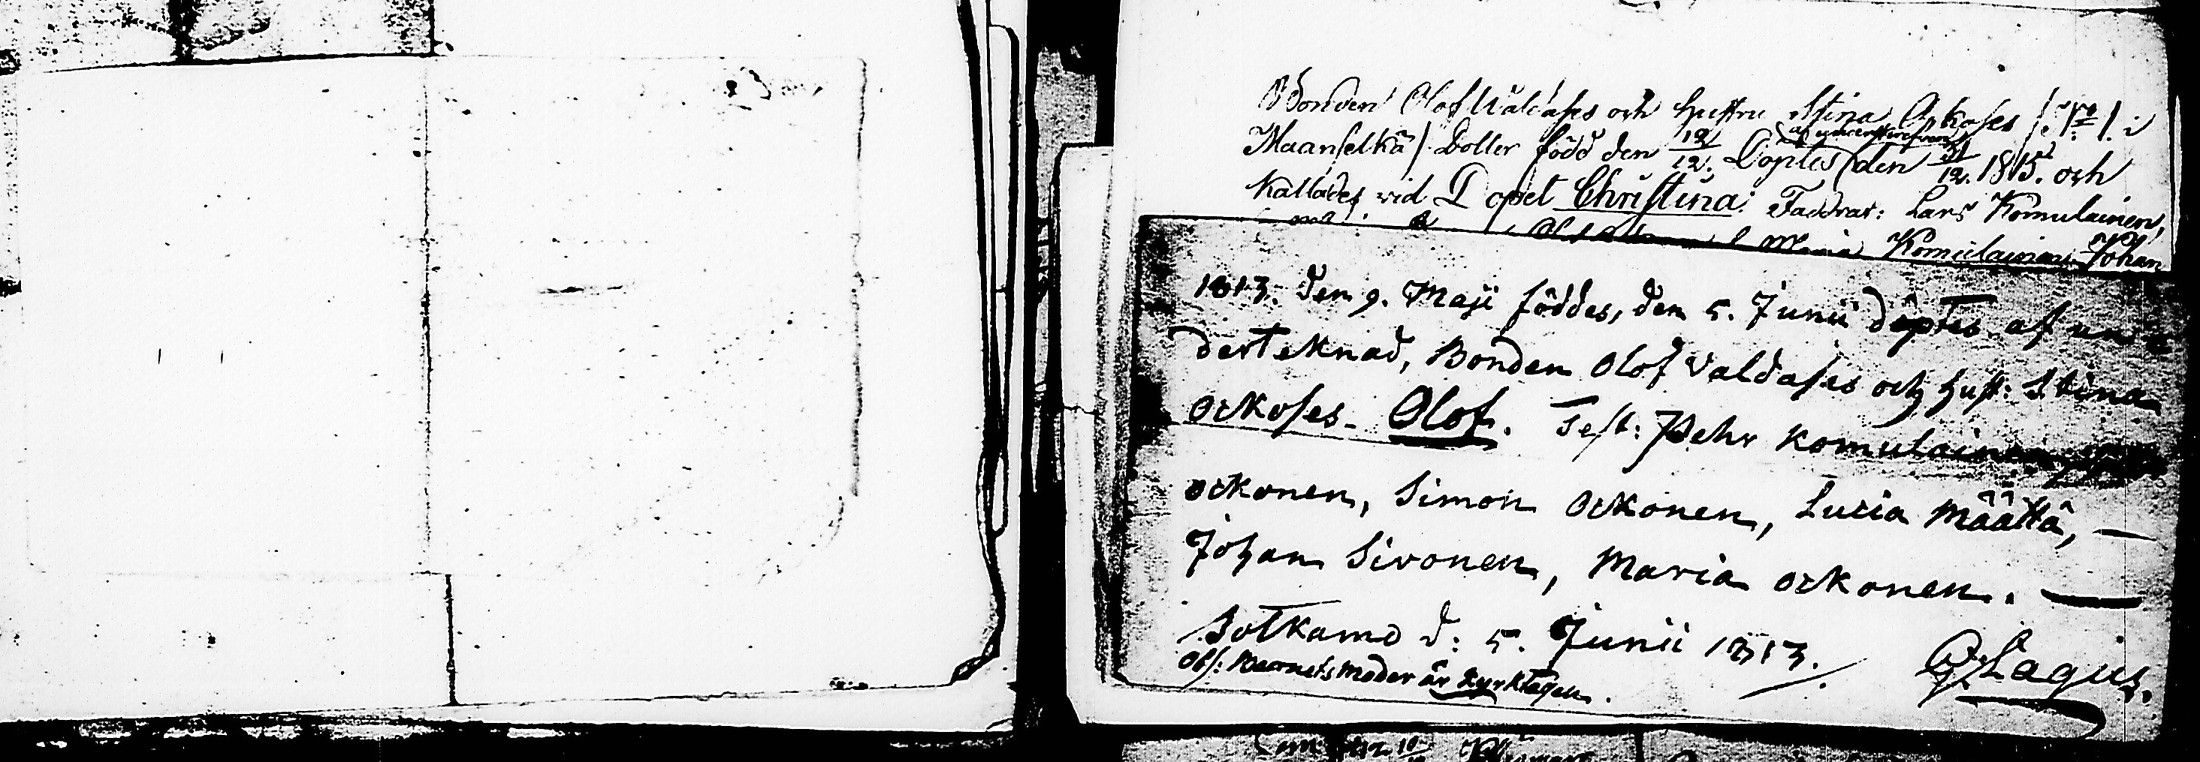 Bonden Olof Waldases och hustru Stina Ockoses /: N:o /: i
Maanselkä / Dotter född den 12/12. Döptes (af undertecknad) den 31/12. 1815. och
kallades vid Dopet Christina: Faddrar: Lars Komulainen,
Maria Komulainen, Johan
1813. den 9. Maji föddes, den 5. Junii döptes af un
derteknad, Bonden Olof Valdases och hust: Stina
Ockoses. Olof. Test: Pehr Komulainen,
Ockonen, Simon Ockonen, Lucia Määttä, —
Johan Sivonen, Maria Ockonen. —
Sotkamo d: 5. Junii 1813.
G. Lagus.
Obs: Barnets moder är kyrktagen.